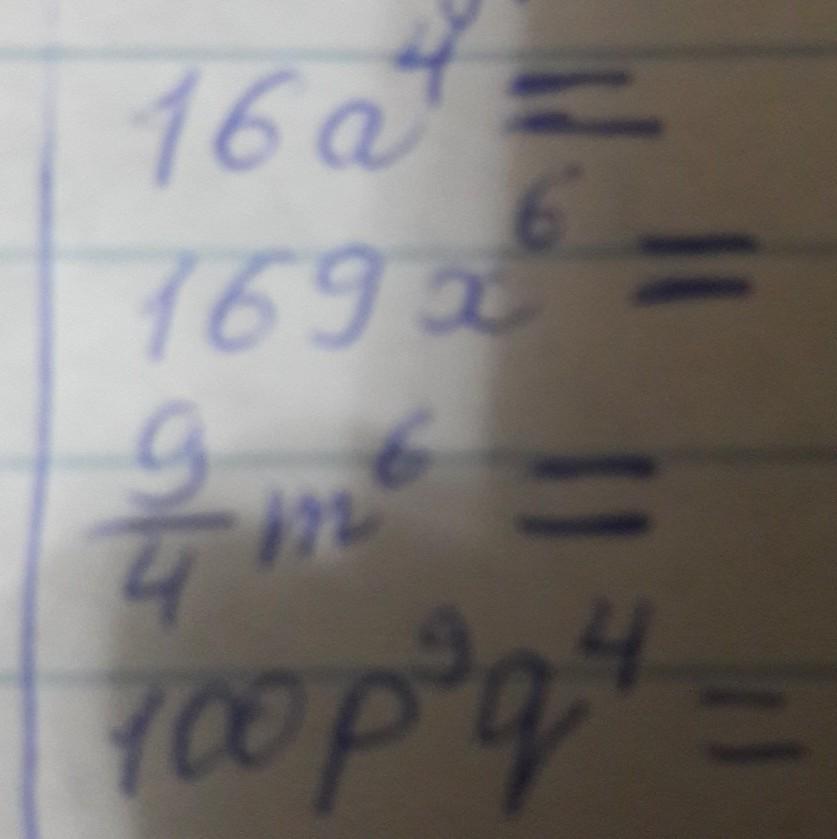 16a⁴ =
169x⁶ =
9/4 m⁶ =
100p⁹q⁴ =